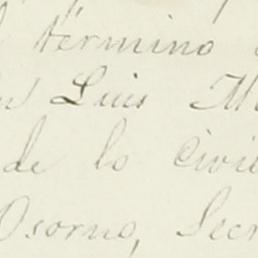 término
Luis M
de lo Civil
Osorno, Secr